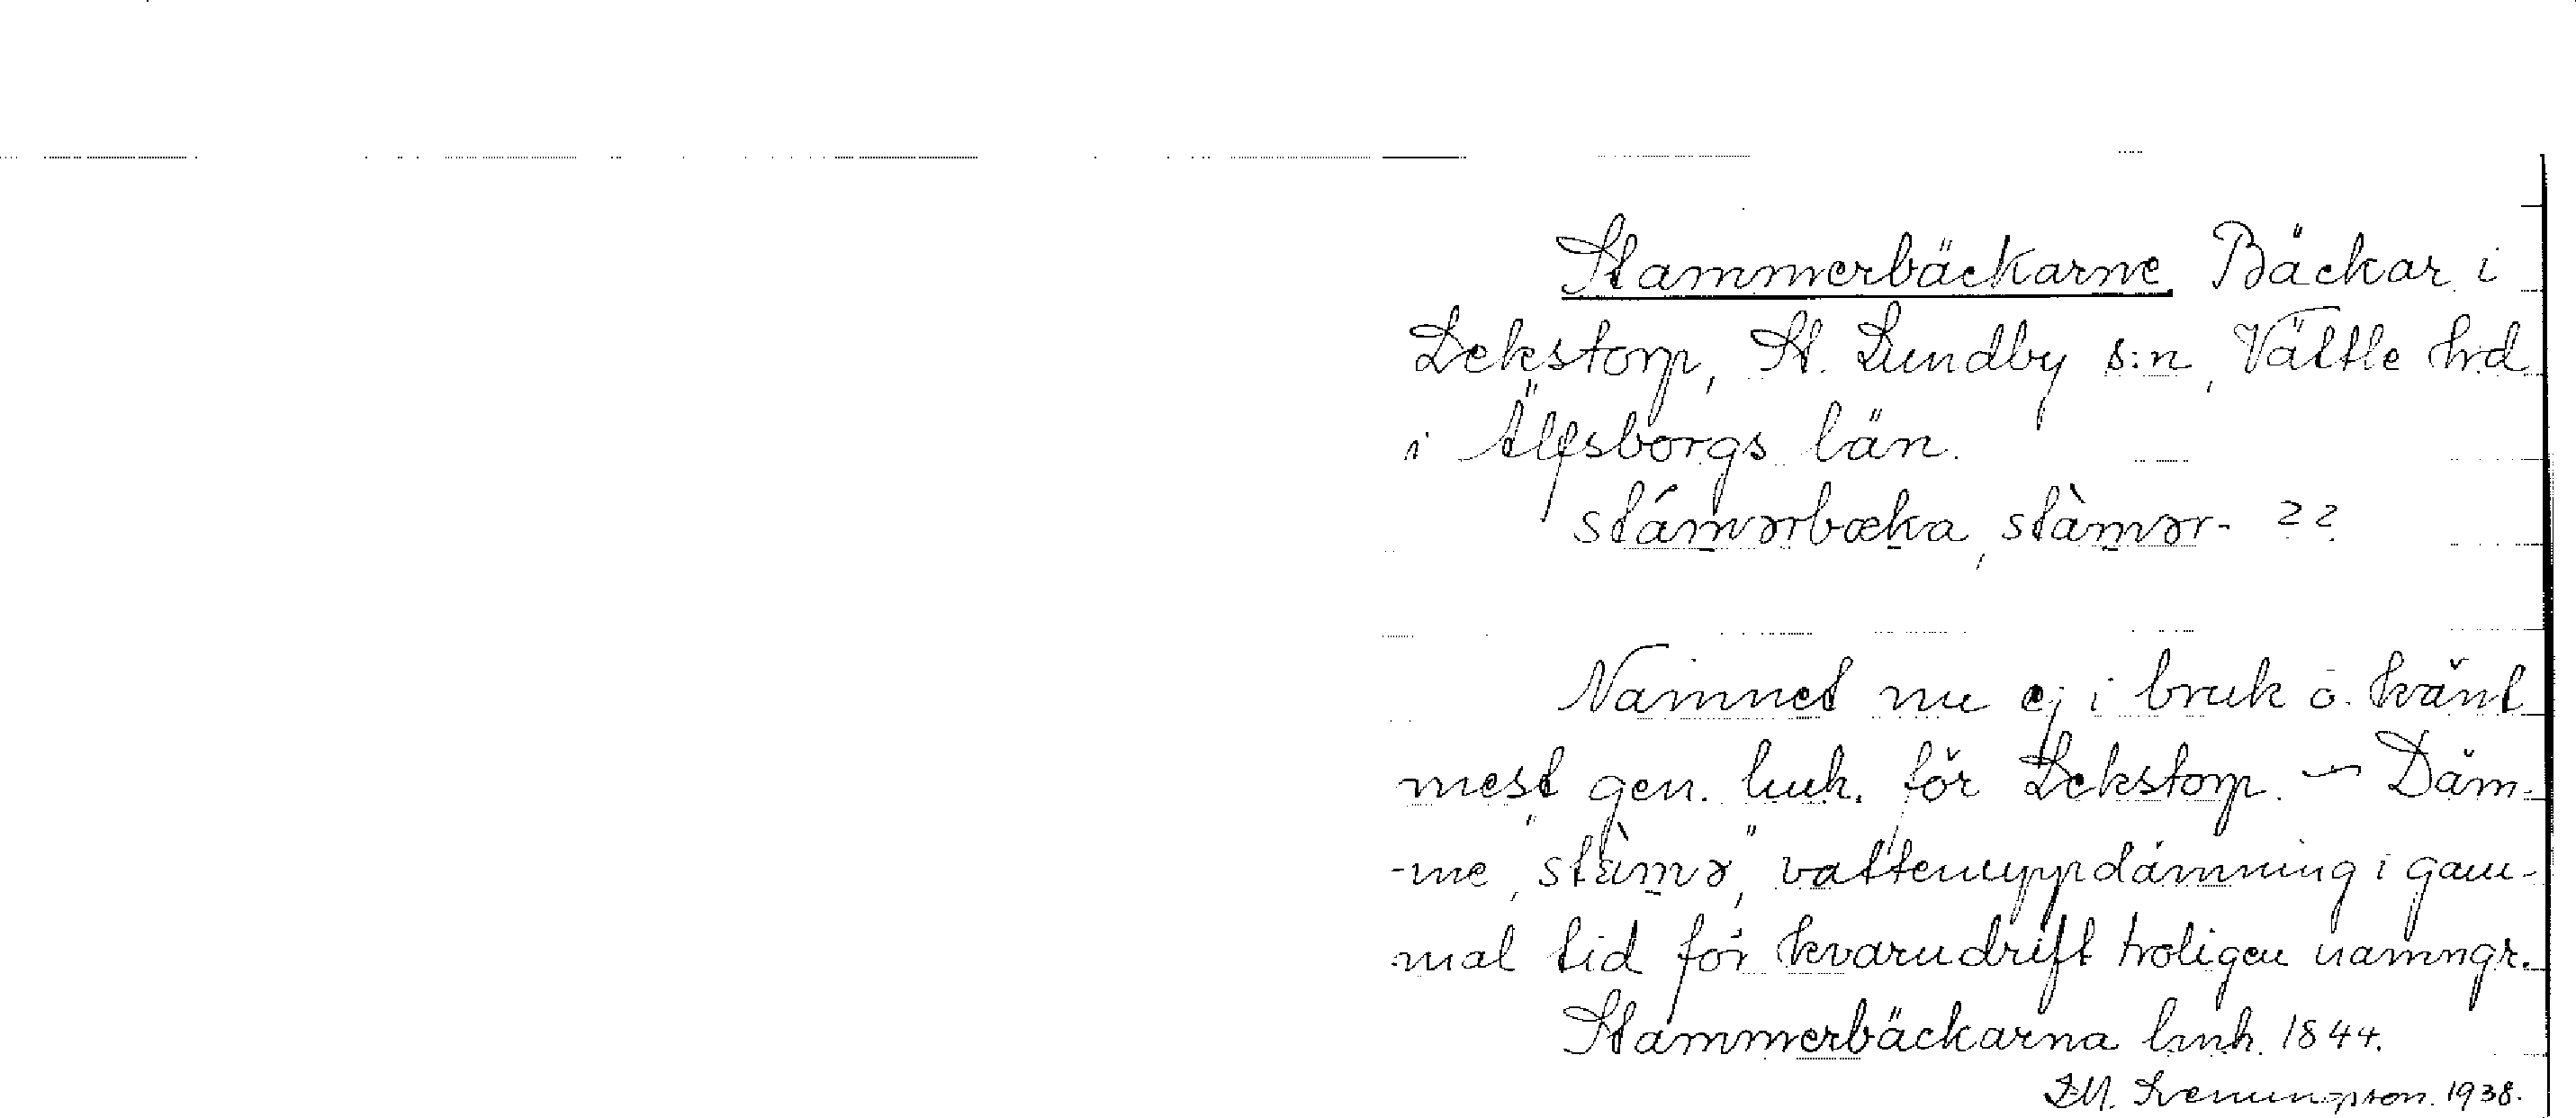 Stammerbäckarne. Bäckar i
Lekstorp, St. Lundby s:n, Vättle hd
i Älfsborgs län.
stámərbæka, stàmər- 22
Namnet nu ej i bruk o. känt
mest gen. lmh. för Lekstorp. – Däm-
-me, "stàmə", vattenuppdämning i gam-
mal tid för kvarndrift troligen namngr.
Stammerbäckarna lmh. 1844.
1938.